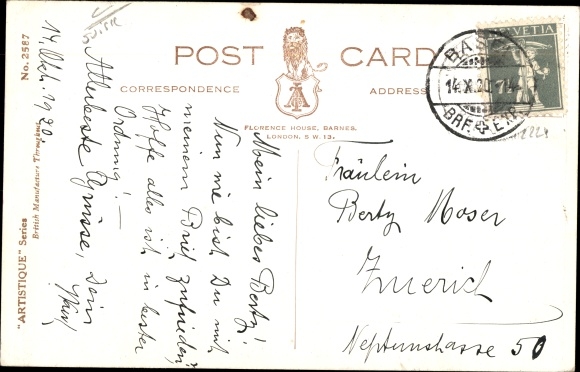 No. 2587
"ARTISTIQUE" Series
British Manufacture Throughout
POST CARD
CORRESPONDENCE
ADDRESS
FLORENCE HOUSE, BARNES,
LONDON, S.W.13.
HELVETIA
BASEL
14.X.20
BRF. EXP.
14. Okt. 1920.
Mein liebes Berty!
Nun wie bist Du mit
meinem Brief zufrieden?
Hoffe alles ist in bester
Ordnung! —
Allerbeste Grüsse, Dein
Fräulein
Berty Moser
Zuerich
Neptunstrasse 50